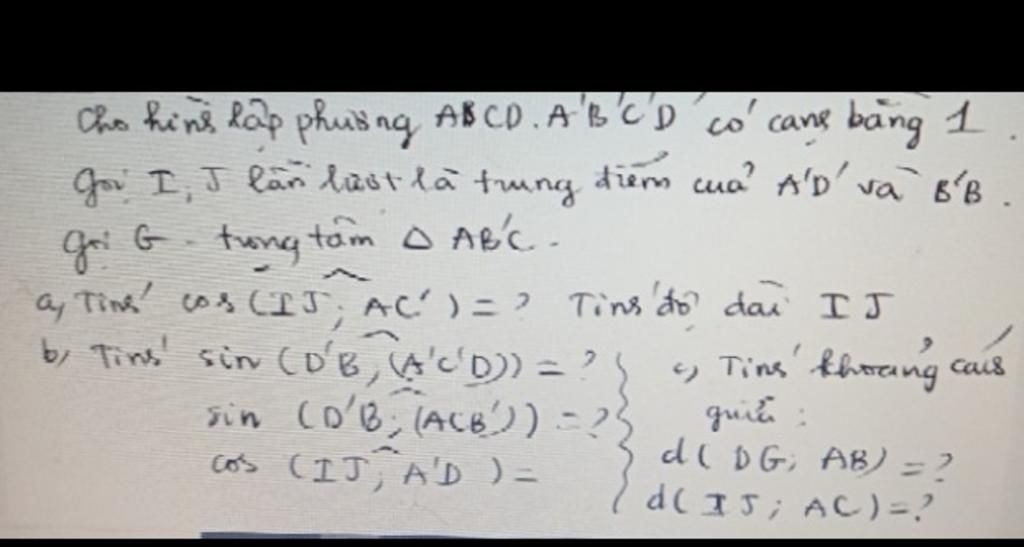 Cho hình lập phương ABCD.A'B'C'D' có cạnh bằng 1.
Gọi I, J lần lượt là trung điểm của A'D' và B'B.
Gọi G - trọng tâm Δ AB'C.
a, Tính cos (IJ; AC') = ? Tính độ dài IJ
b, Tính sin (D'B, (A'C'D)) = ?
sin (D'B; (ACB')) = ?
cos (IJ; A'D) =
c, Tính khoảng cách
giữa:
d( DG; AB) = ?
d( IJ; AC) = ?